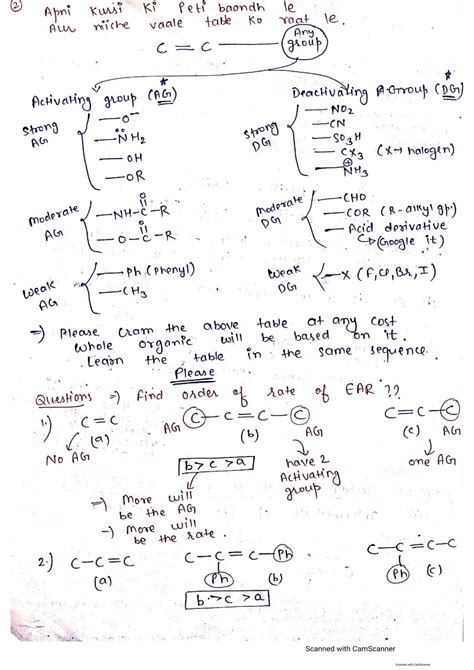 ② Apni Kursi Ki Peti baandh le
Aur niche vaale table ko raat le.
C = C — Any group
Activating group (AG)*
Deactivating Group (DG)*
Strong AG
—O⁻
—N̈H₂
—OH
—OR
Strong DG
—NO₂
—CN
—SO₃H
—CX₃ (X→ halogen)
—N⊕H₃
Moderate AG
—NH—C(=O)—R
—O—C(=O)—R
Moderate DG
—CHO
—COR (R-alkyl gp.)
— Acid derivative
↳(Google it)
Weak AG
—Ph (Phenyl)
—CH₃
Weak DG
—X (F, Cl, Br, I)
⇒ Please cram the above table at any cost
whole organic will be based on it.
Learn the table in the same sequence.
Please
Questions ⇒ find order of rate of EAR??
1.) C=C
(a)
No AG
AG C—C=C—C AG
(b)
have 2 Activating group
C=C—C
(c) AG
one AG
b>c>a
⇒ More will be the AG
→ More will be the rate.
2.) C-C=C
(a)
C-C=C-Ph
Ph (b)
C-C=C-C
Ph (c)
b>c>a
Scanned with CamScanner
Scanned with CamScanner